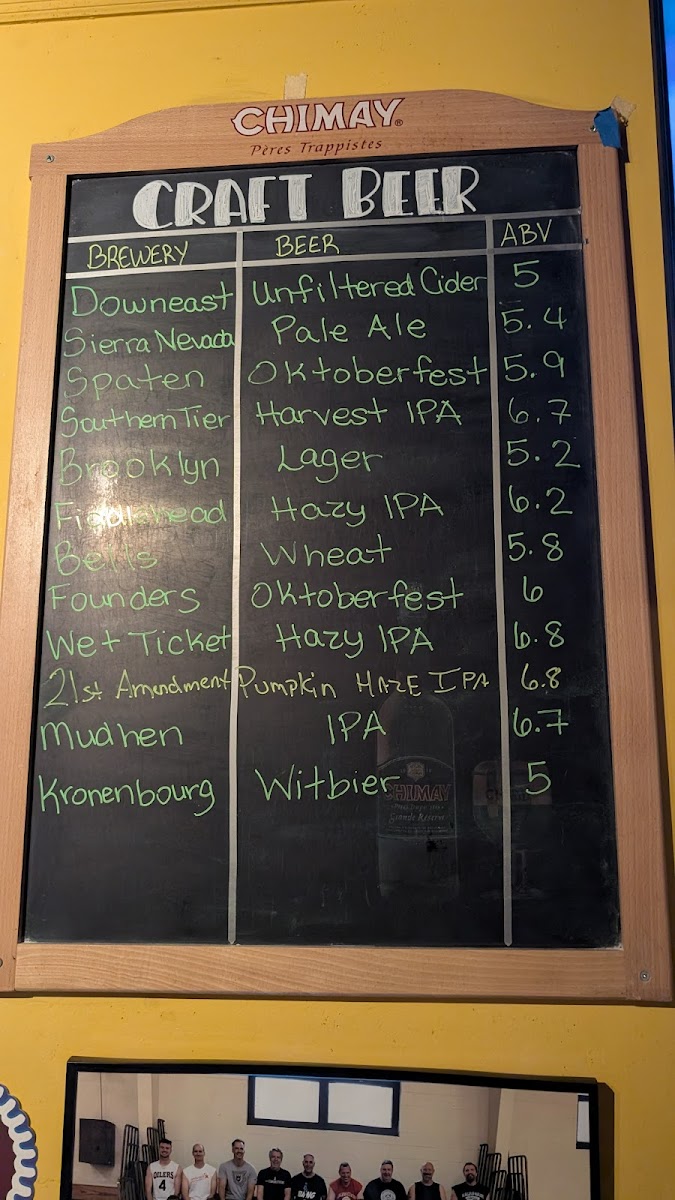 CHIMAY®
Pères Trappistes
CRAFT BEER
BREWERY BEER ABV
Downeast Unfiltered Cider 5
Sierra Nevada Pale Ale 5.4
Spaten Oktoberfest 5.9
Southern Tier Harvest IPA 6.7
Brooklyn Lager 5.2
Fiddlehead Hazy IPA 6.2
Bells Wheat 5.8
Founders Oktoberfest 6
Wet Ticket Hazy IPA 6.8
21st Amendment Pumpkin HAZE IPA 6.8
Mudhen IPA 6.7
Kronenbourg Witbier 5
CHIMAY
Grande Réserve
OILERS
4